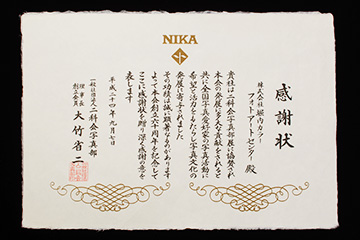 NIKA
感謝状
株式会社堀内カラー
フォトアートセンター 殿
貴社は二科会写真部展に協賛され
本会の発展に多大な貢献をされると
共に全国写真愛好家の写真活動に
希望と活力をもたらし写真文化の
発展に寄与されました
その功績は誠に顕著なものがあります
よって本会創立六十周年を記念して
ここに感謝状を贈り深く感謝の意を
表します
平成二十四年九月七日
一般社団法人二科会写真部
理事長
創立会員
大竹省二